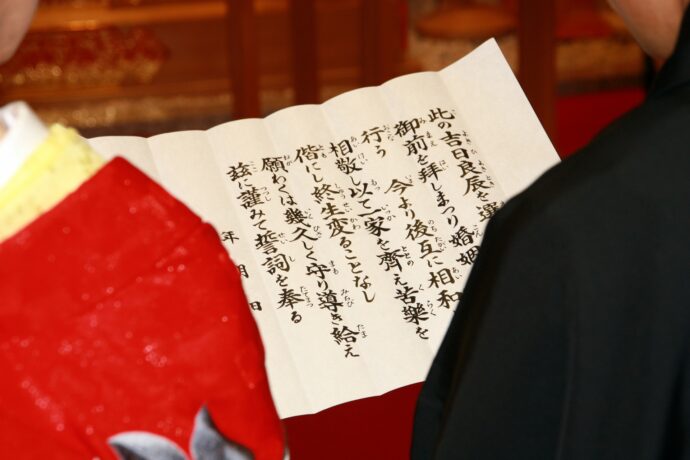 此の吉日良辰を選
御前を拝しまつり婚姻
行う 今より後互に相和
相敬し以て一家を齊え苦樂を
偕にし終生変ることなし
願わくは幾久しく守り導き給え
茲に謹みて誓詞を奉る
年 月 日